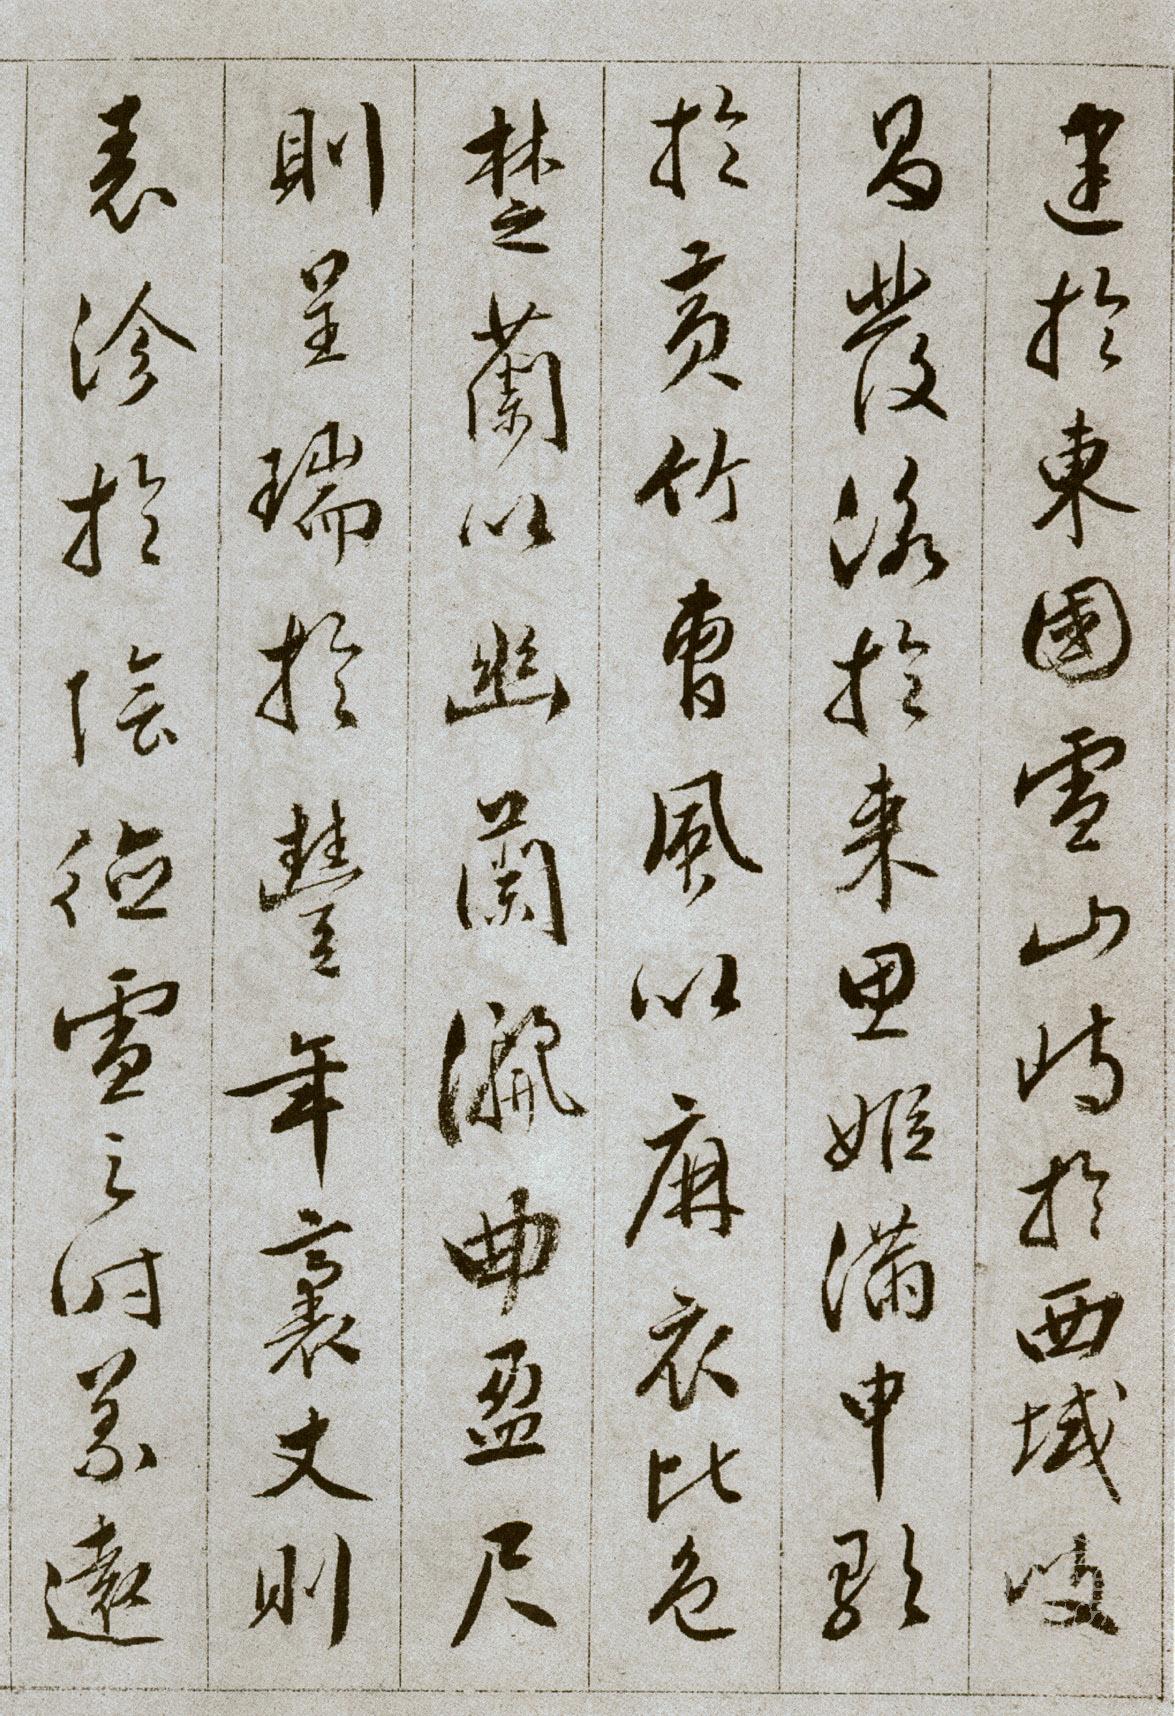 建於東國雪山峙於西域岐
昌發詠於來思姬滿申歌
於黃竹曹風以麻衣比色
楚蘭以幽蘭灑曲盈尺
則呈瑞於豐年袤丈則
表沴於陰德雪之時義遠